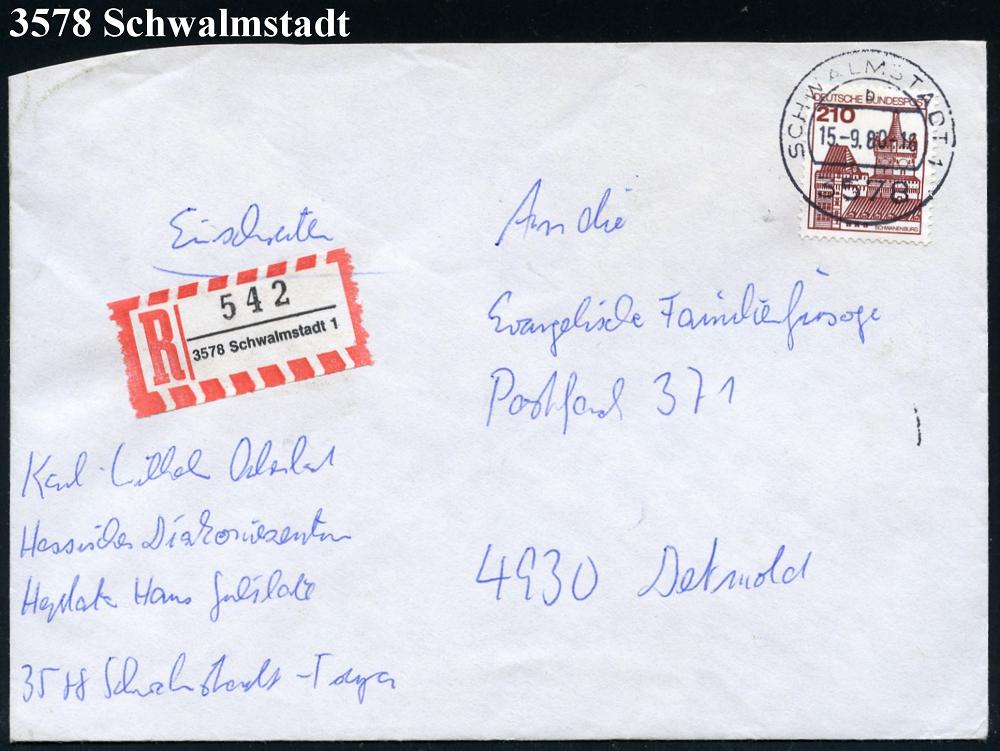 3578 Schwalmstadt
SCHWALMSTADT 1
b
DEUTSCHE BUNDESPOST
210
15.-9.80-18
3578
SCHWANENBURG
Einschreiben
An die
R
542
3578 Schwalmstadt 1
Evangelische Familienfürsorge
Postfach 371
Karl-Wilhelm
Hessisches Diakoniezentrum
Hephata Haus
4930 Detmold
3578 Schwalmstadt-Treysa